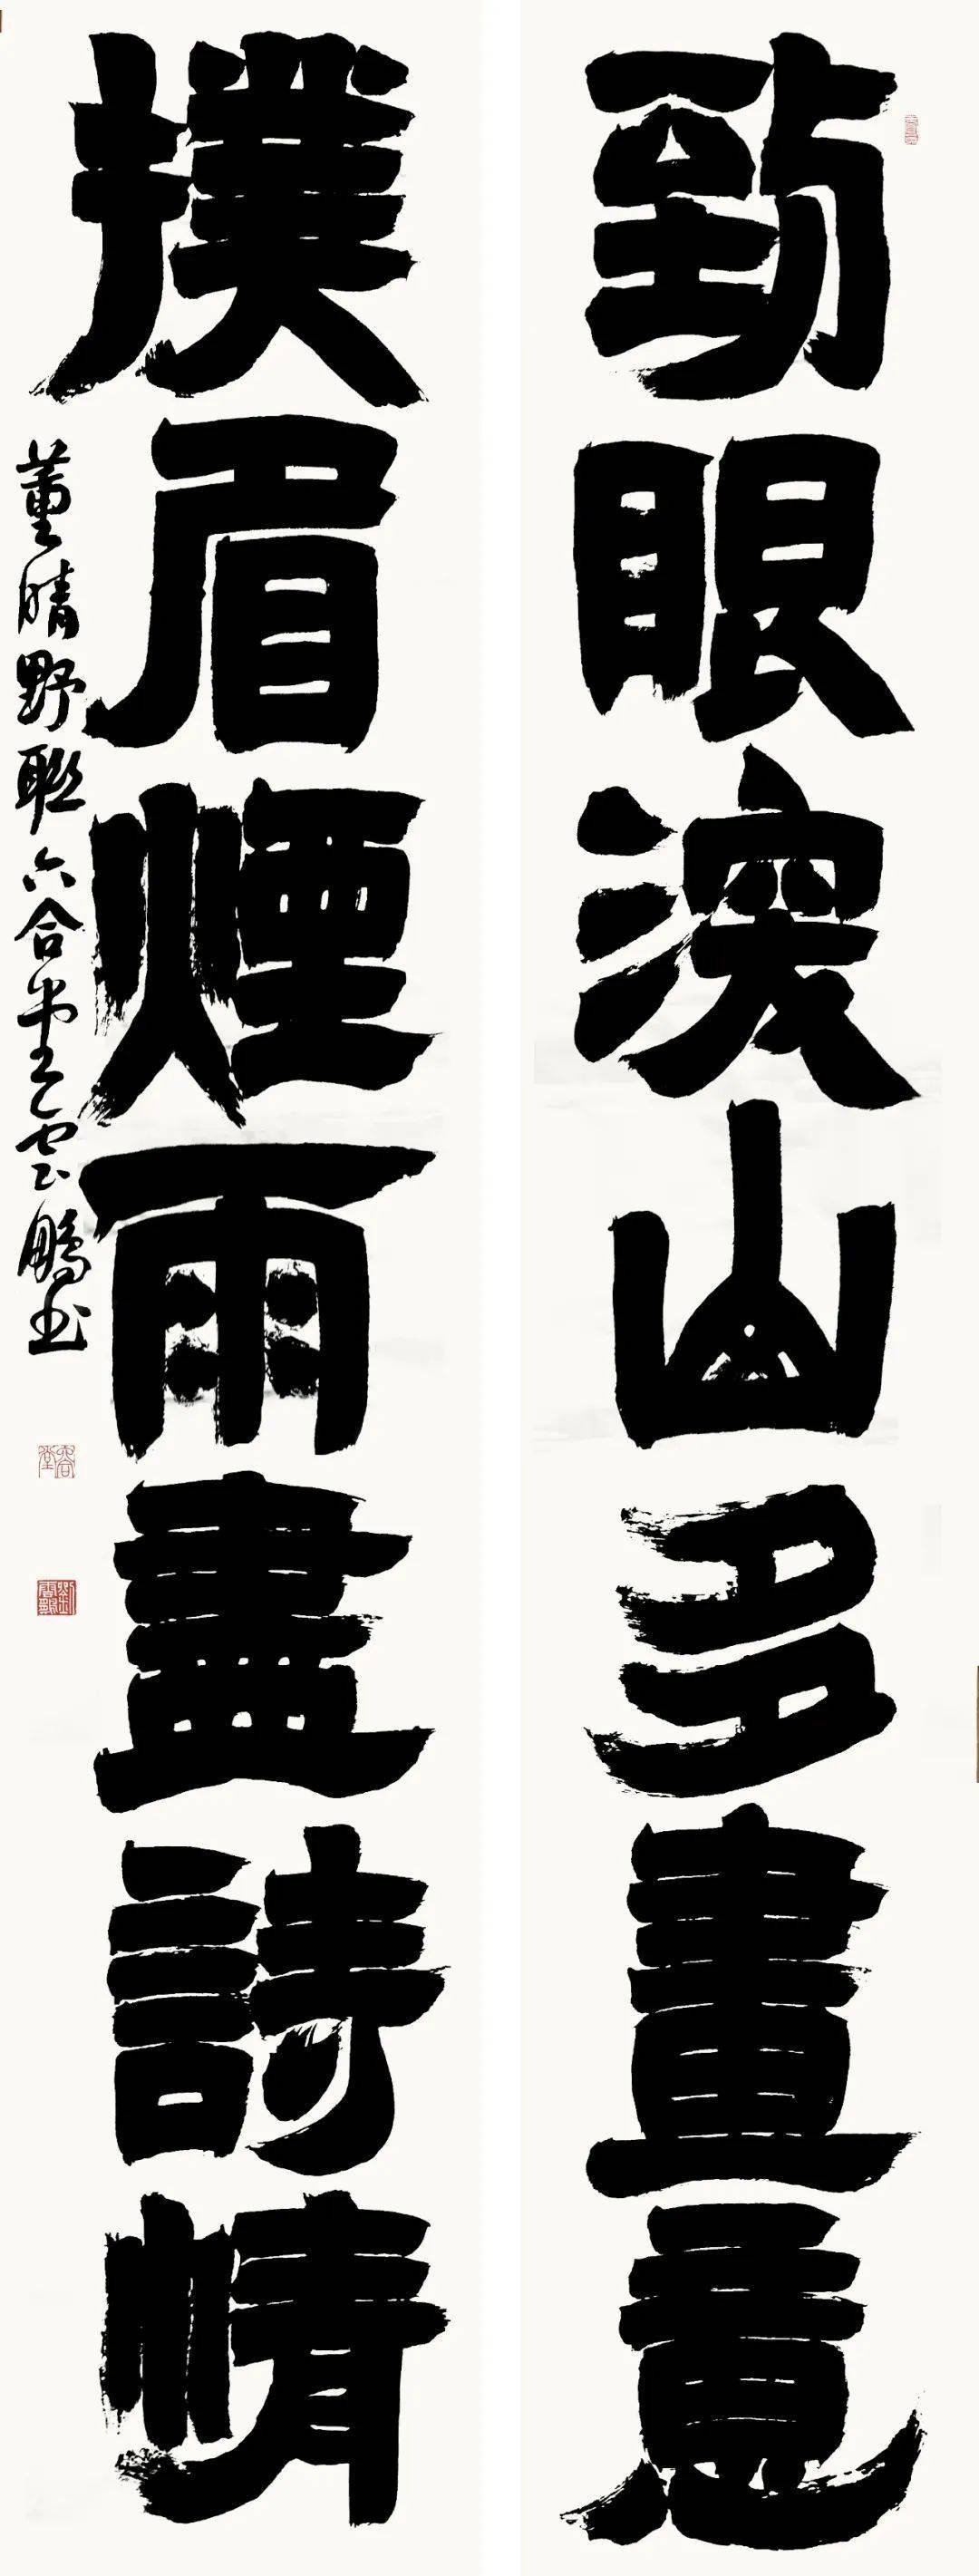 到眼深山多畫意
撲眉煙雨盡詩情
董晴野聯六合堂雲鵬书